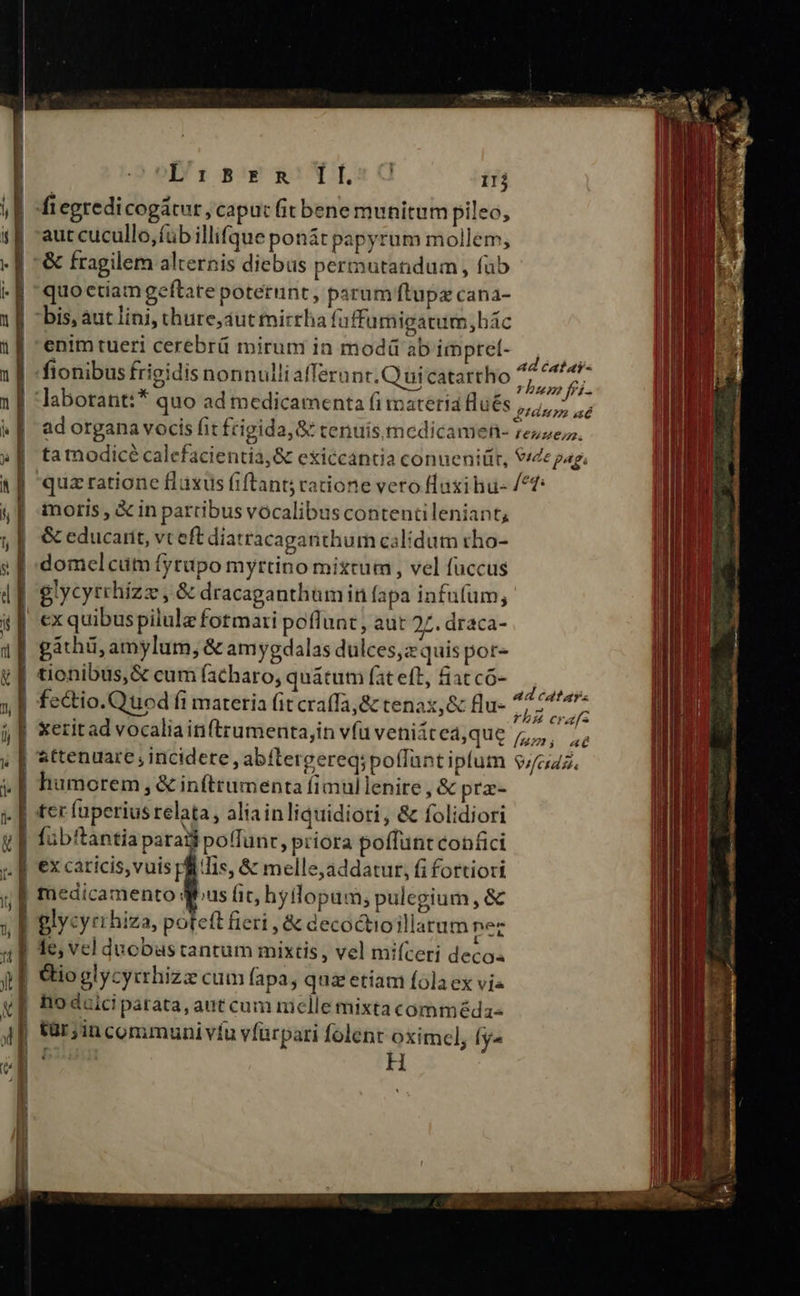 LIBER II. 113
ſi egredi cogátur, caput ſit bene munitum pileo,
aut cucullo, ſub illiſque ponát papyrum mollem,
& fragilem alternis diebus permutandum, ſub
quo etiam geſtare poterunt, parum ſtupæ cana-
bis, aut lini, thure, aut mirrha ſuffumigatum, hác
enim tueri cerebrú mirum in modú ab impreſ-
ſionibus frigidis nonnulli aſſerunt. Qui catartho
laborant:* quo ad medicamenta ſi materia flués
ad organa vocis ſit frigida, & tenuis, medicamen-
ta modicè calefacientia, & exiccantia conueniút,
quæ ratione fluxus ſiſtant; ratione vero fluxi hu-
moris, & in partibus vocalibus contenti leniant,
& educant, vt eſt diatracaganthum calidum cho-
domel cúm ſyrupo myrtino mixtum, vel ſuccus
glycyrrhizæ, & dracaganthum in ſapa infuſum,
ex quibus pilulæ formari poſſunt, aut ℞. draca-
gáthú, amylum, & amygdalas dulces, æquis por-
tionibus, & cum ſacharo, quátum ſat eſt, fiat có-
fectio. Quod ſi materia ſit craſſa, & tenax, & flu-
xerit ad vocalia inſtrumenta, in vſu veniát ea, que
attenuare, incidere, abſtergereq; poſſunt ipſum
humorem, & inſtrumenta ſimul lenire, & præ-
ter ſuperius relata, alia in liquidiori, & ſolidiori
ſubſtantia parari poſſunt, priora poſſunt confici
ex caricis, vuis , & melle, addatur, ſi fortiori
medicamento ſit, hyſſopum, pulegium, &
glycyrrhiza, poteſt fieri, & decoctio illarum per
ſe, vel duobus tantum mixtis, vel miſceri deco-
ctio glycyrrhizæ cum ſapa, quæ etiam ſola ex vi-
no dulci parata, aut cum melle mixta comméda-
tur, in communi vſu vſurpari ſolent oximel, ſy-
H
ad catar-
rhum fri-
gidum aé
tenuem.
vide pag.
ſeq.
ad catar-
rhú craſ-
ſum, aé
viſcidú.